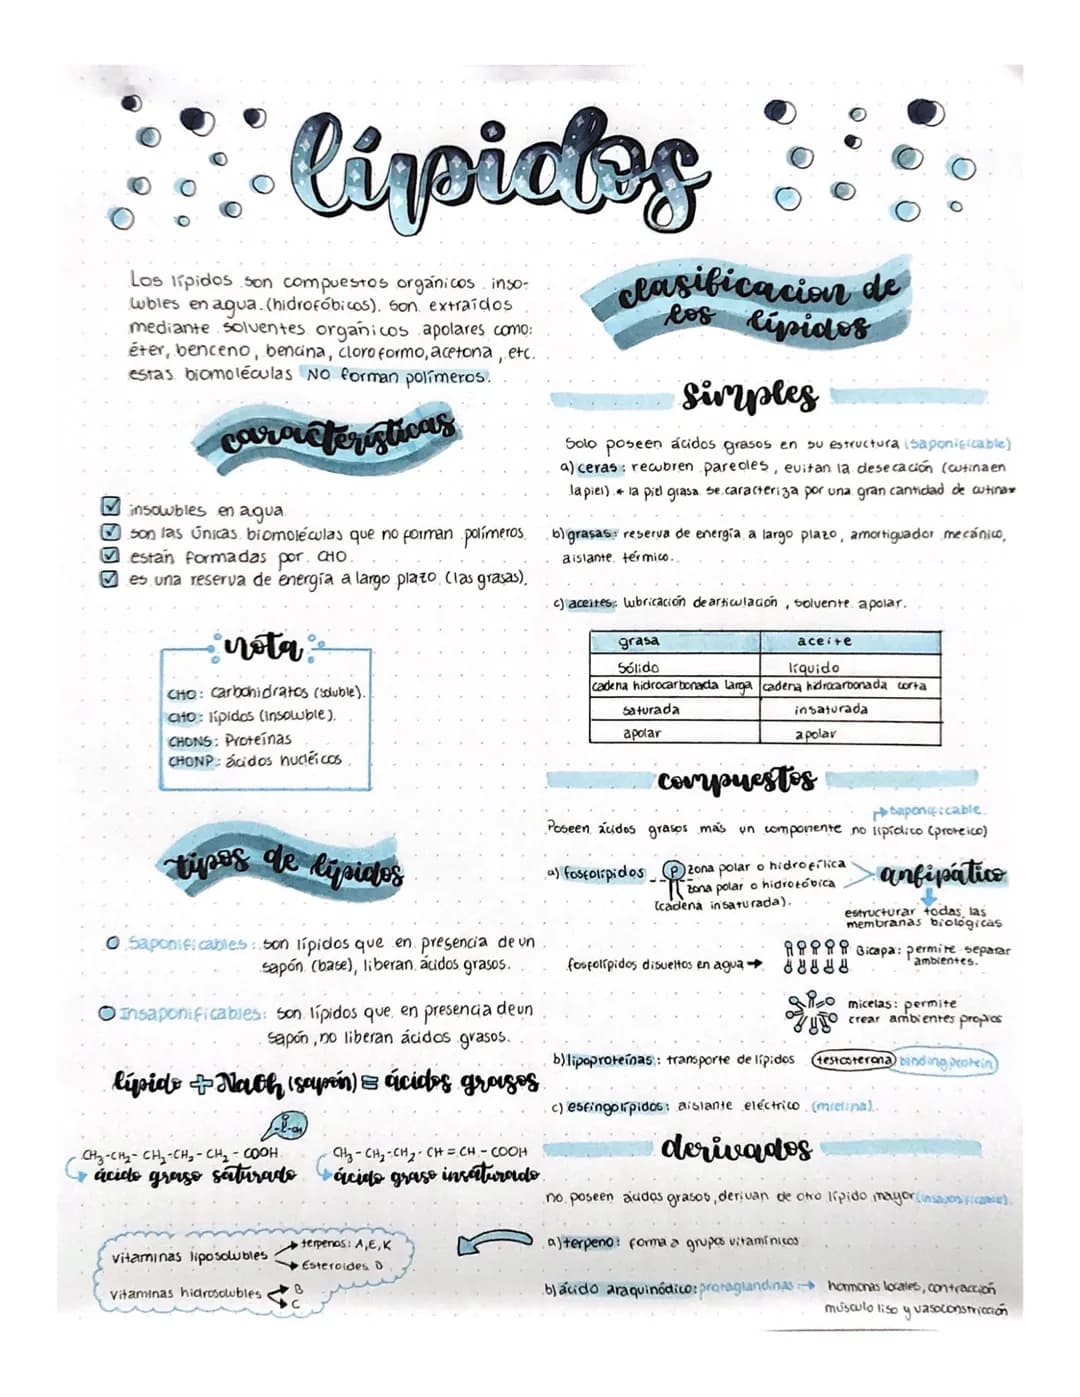 lípidos
Los lípidos son compuestos orgánicos inso-
lubles en agua. (hidrofóbicos). Son extraídos
mediante solventes orgánicos apolares como:
éter, benceno, bencina, cloroformo, acetona, etc.
estas biomoléculas NO forman polímeros.
características
insolubles en agua
son las únicas biomoléculas que no forman polímeros
están formadas por CHO.
es una reserva de energía a largo plazo (las grasas).
nota
CHO: carbohidratos (soluble).
CHO: lípidos (insoluble).
CHONS: Proteínas
CHONP: ácidos nucléicos
tipos de lípidos
Saponificables: son lípidos que en presencia de un
sapón (base), liberan ácidos grasos.
Insaponificables: son lípidos que en presencia de un
sapón, no liberan ácidos grasos.
lípido + NaOh (sapón) = ácidos grasos
CH3-CH2-CH2-CH2-CH2-COOH
ácido graso saturado
CH3-CH2-CH2-CH=CH-COOH
ácido graso insaturado
vitaminas liposolubles
terpenos: A, E, K
Esteroides D
vitaminas hidrosolubles
B
C
clasificacion de
los lípidos
simples
Solo poseen ácidos grasos en su estructura (saponificable)
a) ceras: recubren paredes, evitan la desecación (cutina en
la piel). * la piel grasa se caracteriza por una gran cantidad de cutina *
b) grasas: reserva de energía a largo plazo, amortiguador mecánico,
aislante térmico.
c) aceites: lubricación de articulación, solvente apolar.
grasa aceite
Sólido líquido
cadena hidrocarbonada larga cadena hidrocarbonada corta
saturada insaturada
apolar apolar
compuestos
saponificable
Poseen ácidos grasos más un componente no lipídico (proteico)
a) fosfolípidos
P
zona polar o hidrofílica
zona polar o hidrofóbica
(cadena insaturada).
anfipático
estructurar todas las
membranas biológicas
fosfolípidos disueltos en agua
Bicapa: permite separar
ambientes.
micelas: permite
crear ambientes propios
b) lipoproteínas: transporte de lípidos testosterona binding protein
c) esfingolípidos: aislante eléctrico (mielina).
derivados
no poseen ácidos grasos, derivan de otro lípido mayor (insaponificable)
a) terpeno: forma a grupos vitamínicos
b) ácido araquinódico: prostaglandinas → hormonas locales, contracción
músculo liso y vasoconstricción